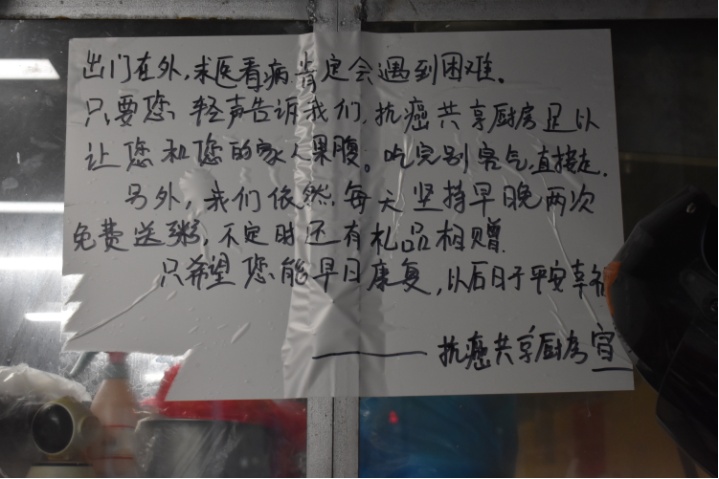 出门在外，求医看病肯定会遇到困难。
只要您 轻声告诉我们，抗癌共享厨房足以
让您和您的家人果腹。吃完别客气，直接走。
另外，我们依然，每天坚持早晚两次
免费送粥，不定时还有礼品相赠
只希望您能早日康复，以后日子平安幸福
——— 抗癌共享厨房宣